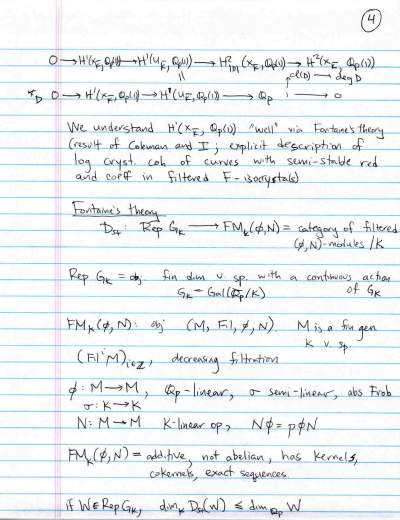 4
0 → H¹(X_K̄, Qp(1)) → H¹(U_K̄, Qp(1)) → H²_|D|(X_K̄, Qp(1)) → H²(X_K̄, Qp(1))
|| cl(D) → deg D
*_D 0 → H¹(X_K̄, Qp(1)) → H¹(U_K̄, Qp(1)) → Qp → 0
We understand H¹(X_K̄, Qp(1)) "well" via Fontaine's theory
(result of Coleman and I; explicit description of
log cryst. coh of curves with semi-stable red
and coeff in filtered F-isocrystals)
Fontaine's theory
D_st: Rep G_K → FM_K(φ,N) = category of filtered
(φ,N)-modules /K
Rep G_K = obj. fin dim v. sp. with a continuous action
G_K = Gal(Q̄p/K) of G_K
FM_K(φ,N): obj (M, Fil, φ, N). M is a fin gen
K v. sp.
(Fil^i M)_{i∈Z}, decreasing filtration
φ: M → M, Qp-linear, σ semi-linear, abs Frob
σ: K → K
N: M → M K-linear op, Nφ = pφN
FM_K(φ,N) = additive, not abelian, has kernels,
cokernels, exact sequences.
if W ∈ Rep G_K, dim_K D_st(W) ≤ dim_Qp W